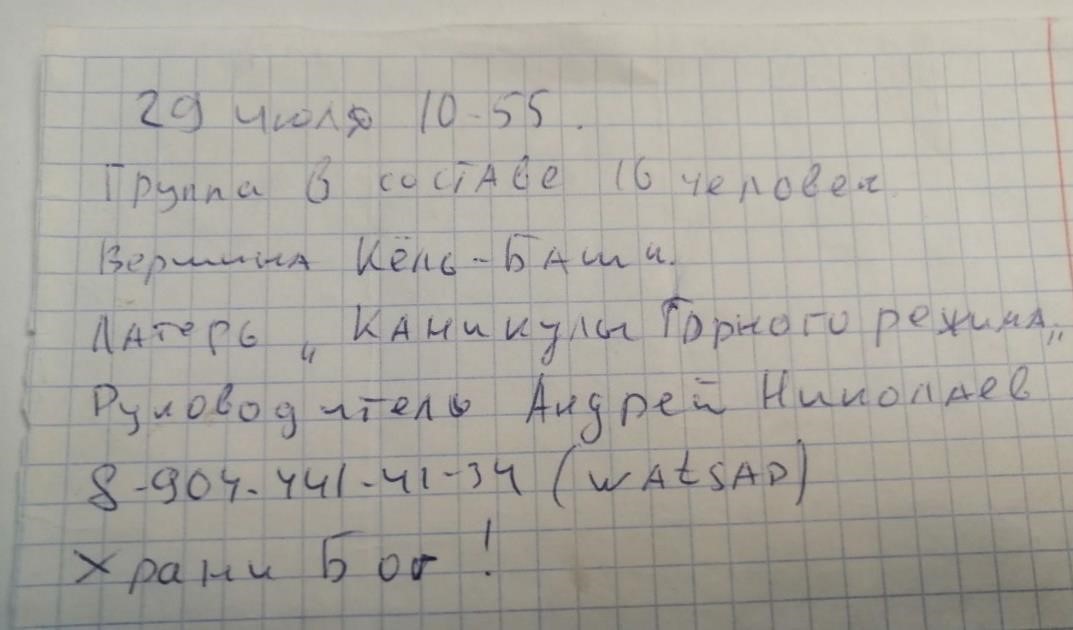 29 июля 10-55.
Группа в составе 16 человек
Вершина Кёль-Баши.
Лагерь „Каникулы Горного режима„
Руководитель Андрей Николаев
8-904-441-41-34 (WAtSAP)
Храни Бог!